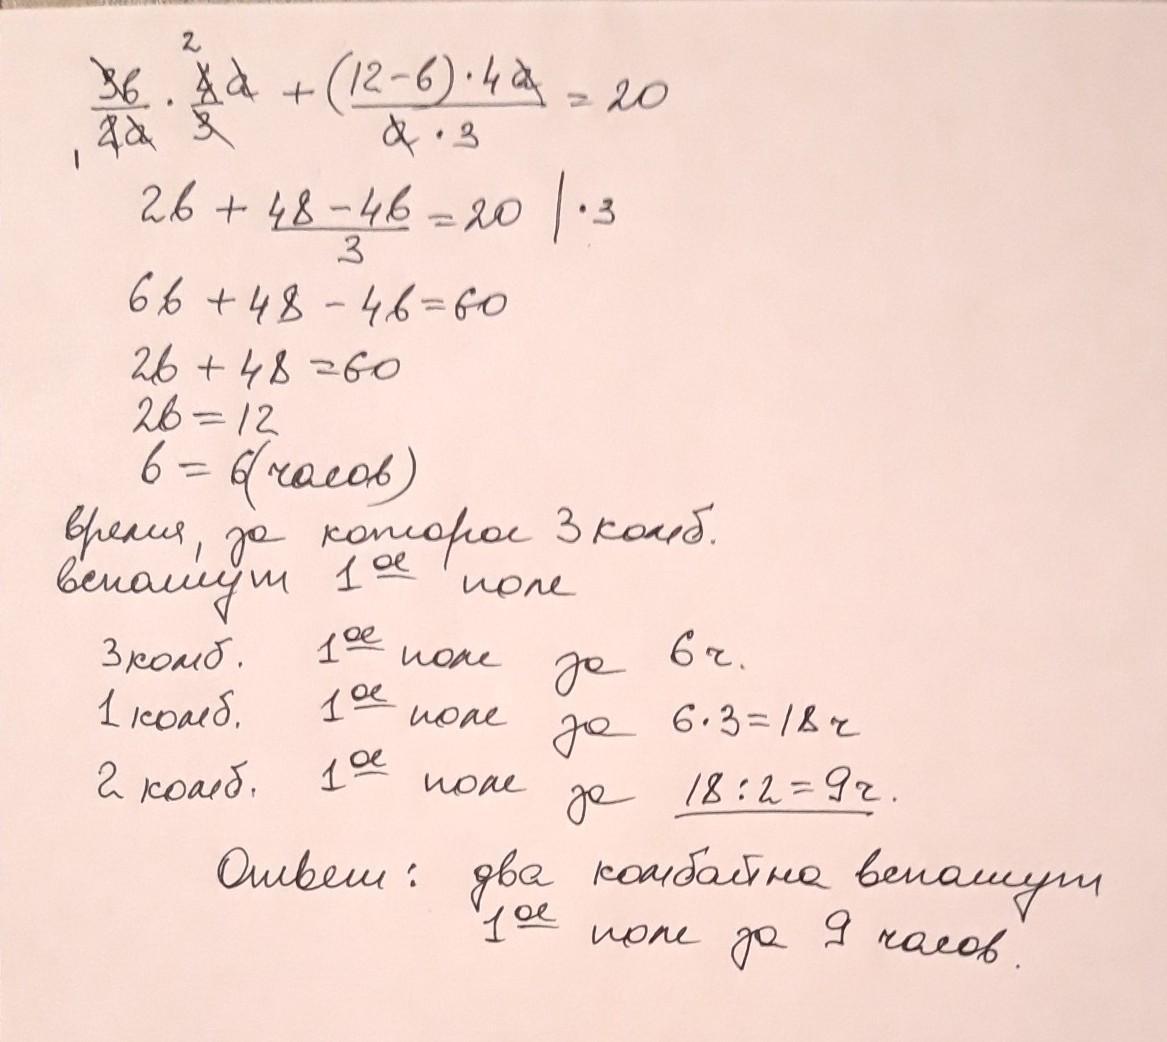 3b/2a · 4a/3 + (12-b)·4a/a·3 = 20
2b + 48-4b/3 = 20 | ·3
6b + 48 - 4b = 60
2b + 48 = 60
2b = 12
b = 6 (часов)
время, за которое 3 комб.
вспашут 1ое поле
3 комб. 1ое поле за 6 ч.
1 комб. 1ое поле за 6·3=18 ч
2 комб. 1ое поле за 18:2=9 ч.
Ответ: два комбайна вспашут
1ое поле за 9 часов.